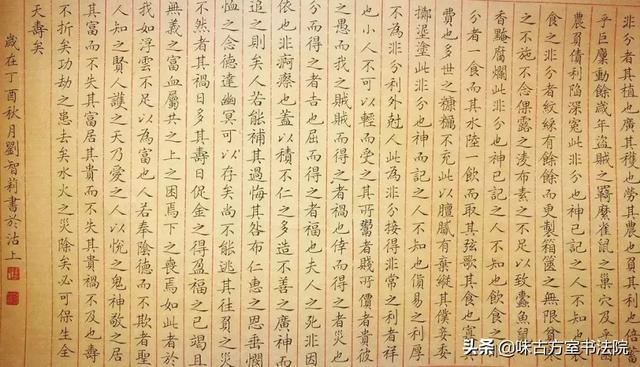 非分者其植也廣其穫也勞其農也負其利也倍蓄
乎巨廩動餘歲年盜賊之羇縻雀鼠之巢穴及乎
農負債利陷深冤此非分也神已記之人不知也
食之非分者紋綵有餘餘而更製箱篋之無限貧
之不施不念倮露之凌布素之不足以致蠹魚鼠
香黦腐爛此非分也神已記之人不知也飲食之
分者一食而其水陸一飲而取其弦歌其食也寡
費也多世之糠糲不充此以膻膩有棄縱其僕妾委
擲埿塗此非分也神而記之人不知也價易之利厚
不為非分利外尅人此為非分接得非常之利者祥
也小人不可以輕而受之其所鬻者賤所價者貴彼
之愚而我之賊賊而得之者禍也倖而得之者災也
分而得之者吉也屈而得之者福也夫人之死非因
依也非痾瘵也蓋以積不仁之多造不善之廣神而
追之則矣人若能補其過悔其咎布仁惠之恩垂憫
恤之念德達幽冥可以存矣尚不能逃其往負之災
不然者其禍日多其壽日促金之得盈福之已竭且
無義之富血屬共之上之困焉下之喪焉如此者於
我如浮雲不足以為富也人若奉陰德而不欺者聖
人知之賢人護之天乃愛之人以悅之鬼神敬之居
其富而不失其富居其貴而不失其貴禍不及也壽
不折矣功劫之患去矣水火之災除矣必可保生全
天壽矣
歲在丁酉秋月劉智莉書於沽上
头条@味古方室书法院